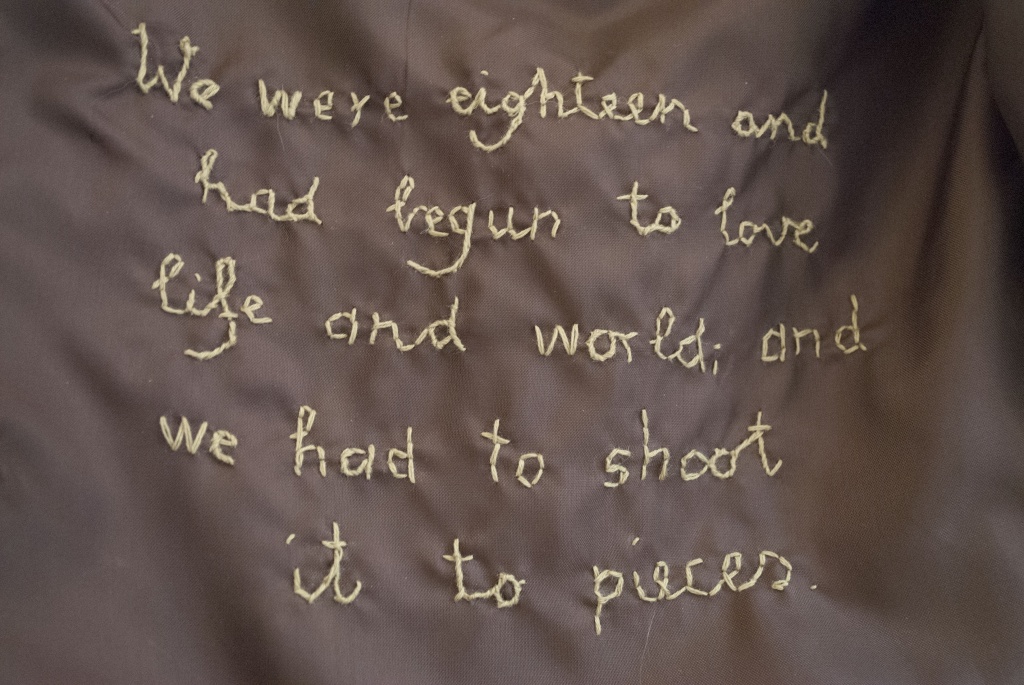 We were eighteen and
had begun to love
life and world; and
we had to shoot
it to pieces.